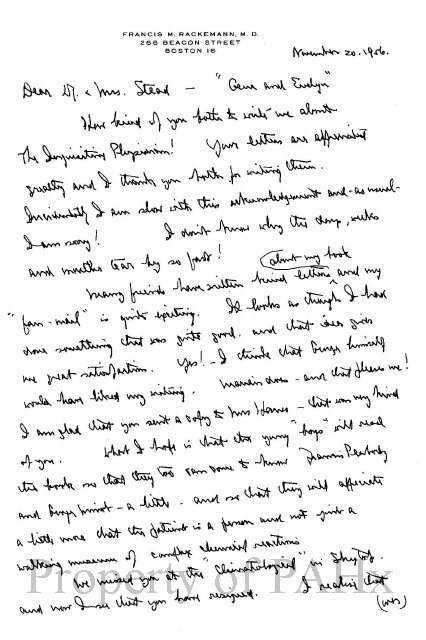 FRANCIS M. RACKEMANN, M.D.
266 BEACON STREET
BOSTON 16
November 20, 1956.
Dear Dr. & Mrs. Stead — "Gene and Evelyn"
How kind of you both to write me about
The Inquisitive Physician! Your letters are appreciated
greatly and I thank you both for writing them.
Incidentally I am slow with this acknowledgement and - as usual -
I am sorry! I don't know why the days, weeks
and months tear by so fast!
about my book
Many friends have written kind letters and my
"fan-mail" is quite exciting. It looks as though I had
done something that was quite good. and that idea gives
me great satisfaction. Yes! - I think that George himself
would have liked my writing. does - and that pleases me!
I am glad that you sent a copy to Mrs - that was very kind
of you. What I hope is that the young "boys" will read
the book so that they too can come to know Francis Peabody
and George Minot - a little - and so that they will appreciate
a little more that the patient is a person and not just a
walking museum of complex chemical reactions
We missed you at the "Climatological" in
and now I see that you have resigned. I realize that
(over)
Property of PAHx